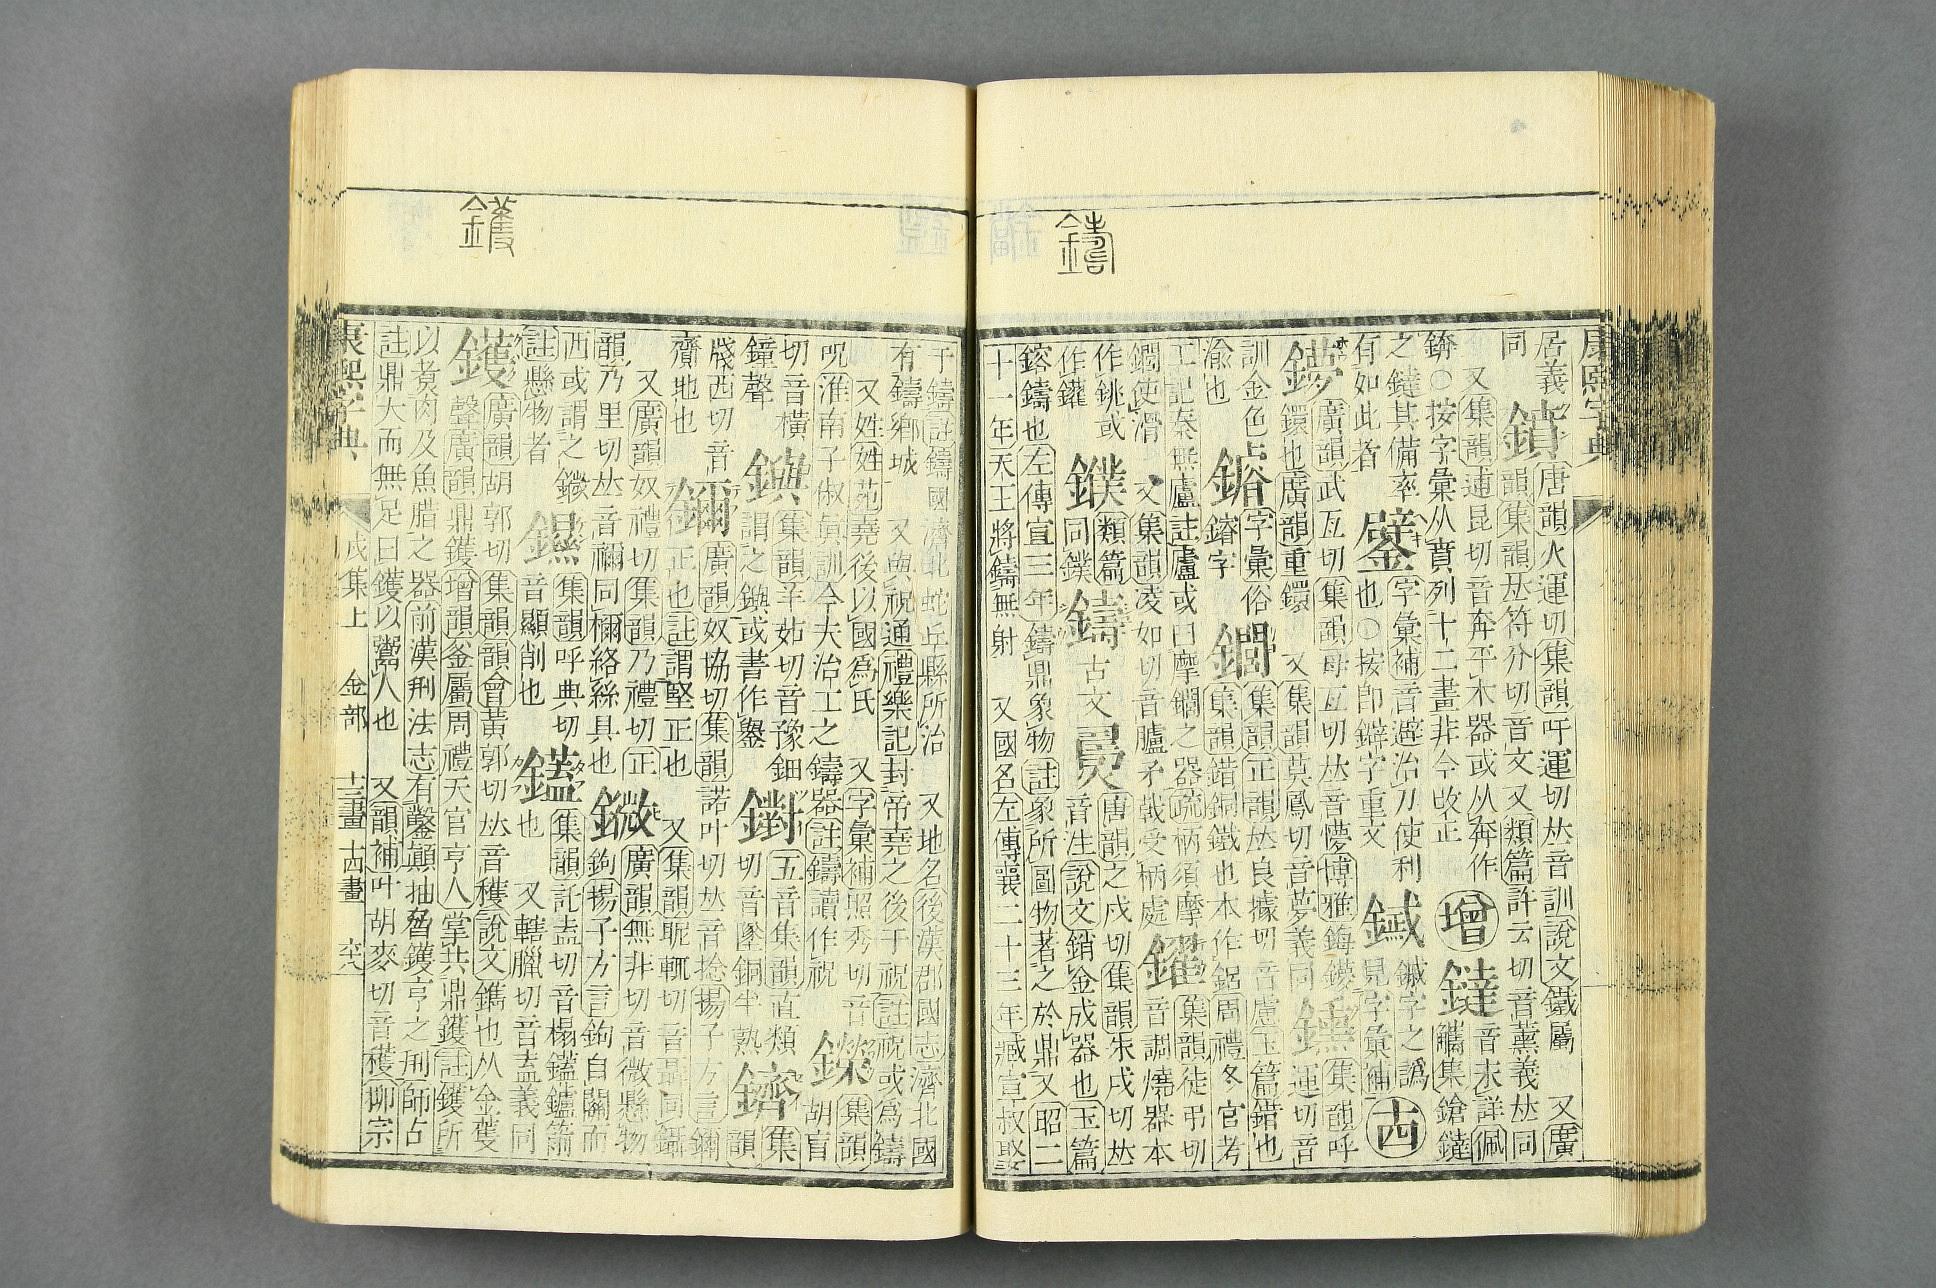 康熙字典
居義 鐼 唐韻火運切集韻吁運切𠀤音訓說文鐵屬 又廣
同 韻集韻𠀤符分切音文又類篇許云切音薰義𠀤同
又集韻逋昆切音奔平木器或从奔作 音未詳佩
錛○按字彙从賁列十二畫非今改正 增 鐽 觿集鎗鐽
之鐽其備卒 鐾 字彙補音避治刀使利 鍼字之譌
有如此者 也○按卽鐴字重文 見字彙補 十四
廣韻武亙切集韻母亙切𠀤音懜博雅 集韻呼
鐶也廣韻重鐶 又集韻莫鳳切音夢義同 運切音
訓金色 字彙俗 鐗 集韻正韻𠀤良據切音慮玉篇錯也
渝也 鎔字 集韻錯銅鐵也本作鋁周禮冬官考
工記秦無廬註廬或曰摩鐗之器疏柄須摩 集韻徒弔切
鐗使滑 又集韻凌如切音臚矛戟受柄處 鑃 音調燒器本
作銚或 鏷 類篇 唐韻之戍切集韻朱戍切𠀤
作鑵 同鏷 鑄 古文 音注說文銷金成器也玉篇
鎔鑄也左傳宣三年鑄鼎象物註象所圖物著之於鼎又昭二
十一年天王將鑄無射 又國名左傳襄二十三年臧宣叔娶
鑄
于鑄註鑄國濟北蛇丘縣所治 又地名後漢郡國志濟北國
有鑄鄕城 又與祝通禮樂記封帝堯之後于祝註祝或爲鑄
又姓姓苑堯後以國爲氏 又字彙補昭秀切音 集韻
呪淮南子俶眞訓今夫冶工之鑄器註鑄讀作祝 鑅 胡盲
切音橫 集韻羊茹切音豫鈿 五音集韻直類 集
鐘聲 鸒 謂之鐭或書作 鐓 切音墜銅半熟 鑇 韻
牋西切音 廣韻奴協切集韻諾叶切𠀤音捻揚子方言
齎地也 鑈 正也註謂堅正也 又集韻昵輒切音聶同鑷
又廣韻奴禮切集韻乃禮切正 廣韻無非切音微懸物
韻乃里切𠀤音禰同檷絡絲具也 鉤揚子方言鉤自關而
西或謂之 集韻呼典切 集韻託盍切音榻鑪箭
註懸物者 音顯削也 鑉 也 又轄臘切音盍義同
鑊 廣韻胡郭切集韻韻會黃郭切𠀤音穫說文鑴也从金蒦
聲廣韻鼎鑊增韻釜屬周禮天官亨人掌共鼎鑊註鑊所
以煮肉及魚腊之器前漢刑法志有鑿顚抽脅鑊亨之刑師古
註鼎大而無足曰鑊以鬻人也 又韻補叶胡麥切音獲柳宗
康熙字典 戌集上 金部 十三畫 十四畫 卆六
鑊